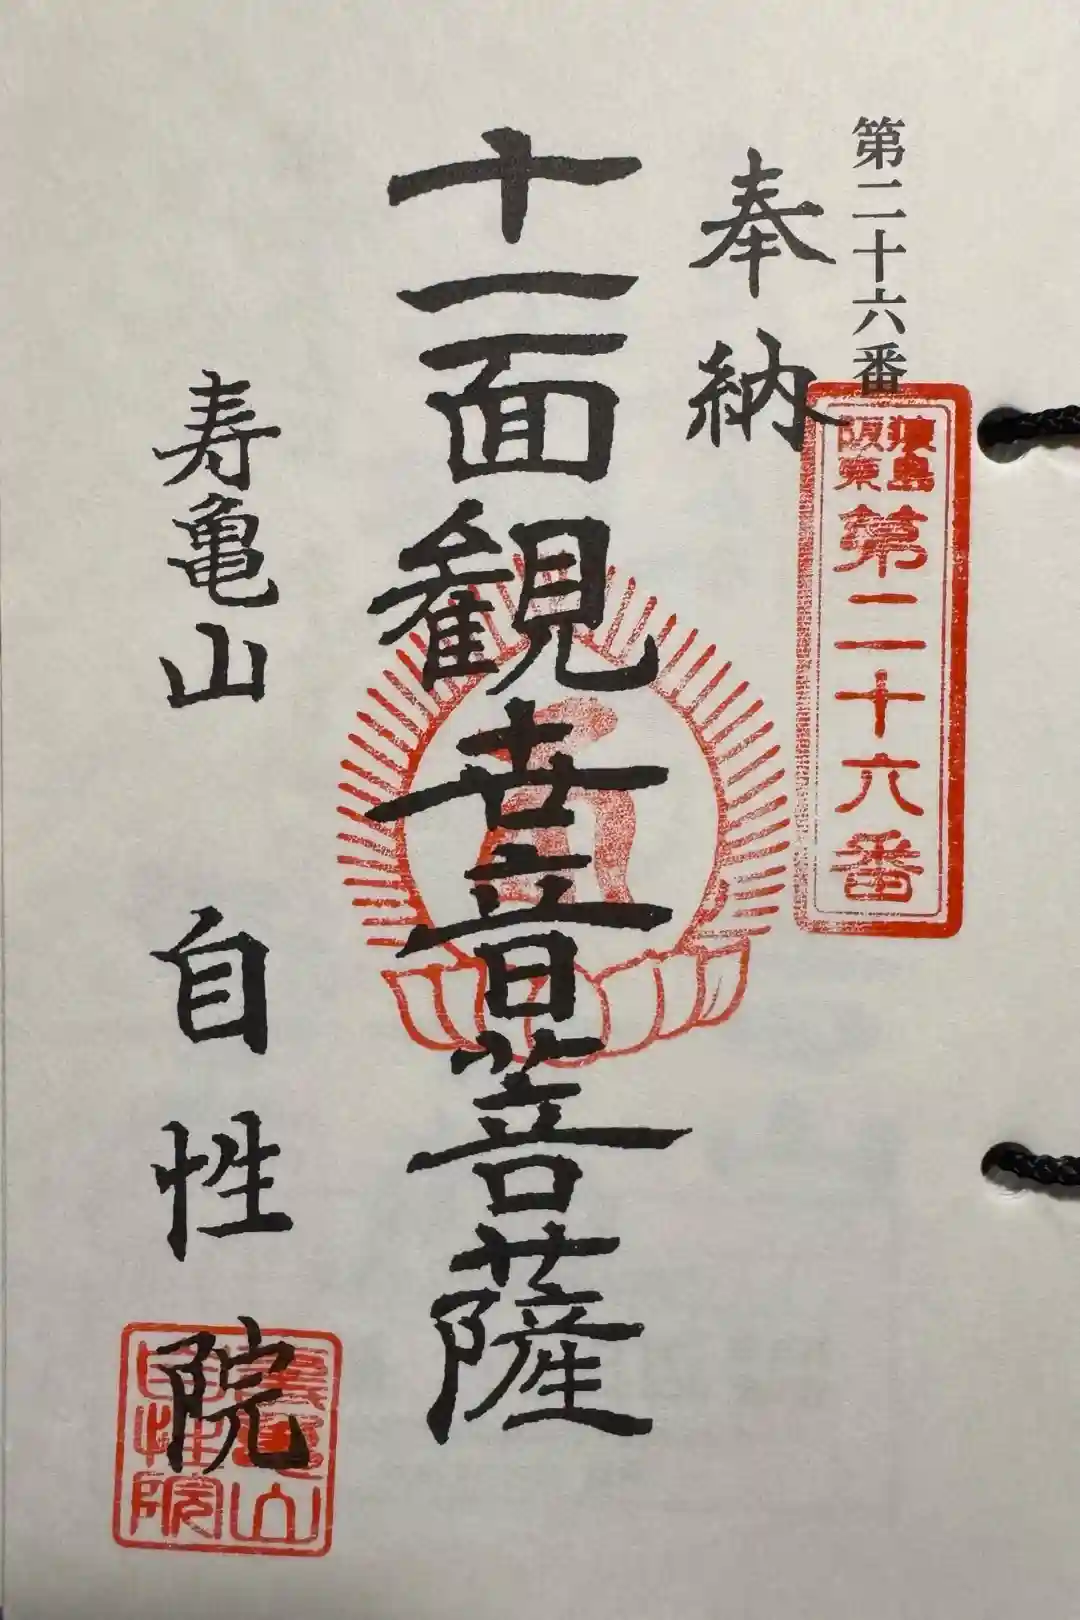 第二十六番
猿島
阪東
第二十六番
奉納
十一面観世音菩薩
寿亀山 自性院
寿亀山
自性院